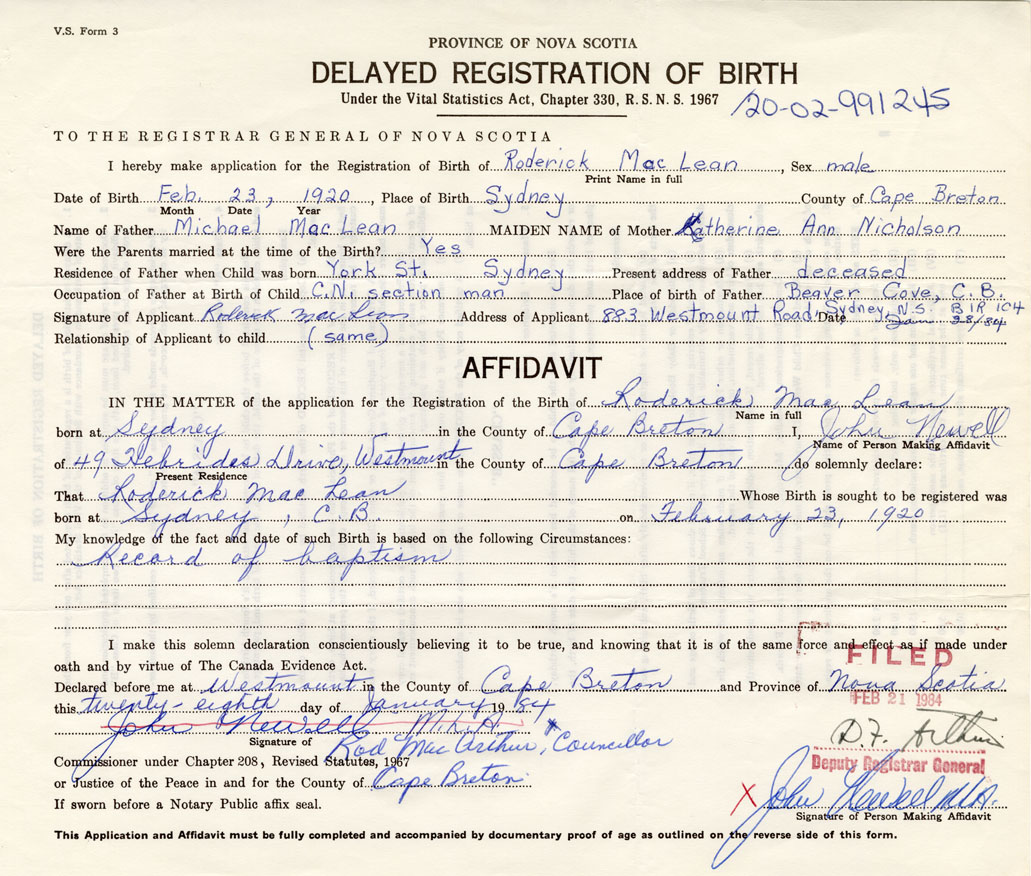 V.S. Form 3
PROVINCE OF NOVA SCOTIA
DELAYED REGISTRATION OF BIRTH
Under the Vital Statistics Act, Chapter 330, R.S.N.S. 1967
20-02-991245
TO THE REGISTRAR GENERAL OF NOVA SCOTIA
I hereby make application for the Registration of Birth of Roderick Mac Lean, Sex male
Print Name in full
Date of Birth Feb. 23, 1920, Place of Birth Sydney County of Cape Breton
Month Date Year
Name of Father Michael Mac Lean MAIDEN NAME of Mother Katherine Ann Nicholson
Were the Parents married at the time of the Birth? Yes
Residence of Father when Child was born York St. Sydney Present address of Father deceased
Occupation of Father at Birth of Child C.N. section man Place of birth of Father Beaver Cove, C.B.
Signature of Applicant Roderick Mac Lean Address of Applicant 883 Westmount Road, Sydney, N.S. B1R 1C4 Date Jan 28/84
Relationship of Applicant to child (same)
AFFIDAVIT
IN THE MATTER of the application for the Registration of the Birth of Roderick Mac Lean
Name in full
born at Sydney in the County of Cape Breton I, John Newell
Name of Person Making Affidavit
of 49 Hebrides Drive, Westmount in the County of Cape Breton do solemnly declare:
Present Residence
That Roderick Mac Lean Whose Birth is sought to be registered was
born at Sydney, C.B. on February 23, 1920
My knowledge of the fact and date of such Birth is based on the following Circumstances:
Record of baptism
I make this solemn declaration conscientiously believing it to be true, and knowing that it is of the same force and effect as if made under
oath and by virtue of The Canada Evidence Act.
FILED
Declared before me at Westmount in the County of Cape Breton and Province of Nova Scotia
this twenty-eighth day of January 1984
FEB 21 1984
John Newell M.L.A.
D.F. Arthur
Signature of Rod Mac Arthur, Councillor
Commissioner under Chapter 208, Revised Statutes, 1967
Deputy Registrar General
or Justice of the Peace in and for the County of Cape Breton
X John Newell MLA.
If sworn before a Notary Public affix seal.
Signature of Person Making Affidavit
This Application and Affidavit must be fully completed and accompanied by documentary proof of age as outlined on the reverse side of this form.